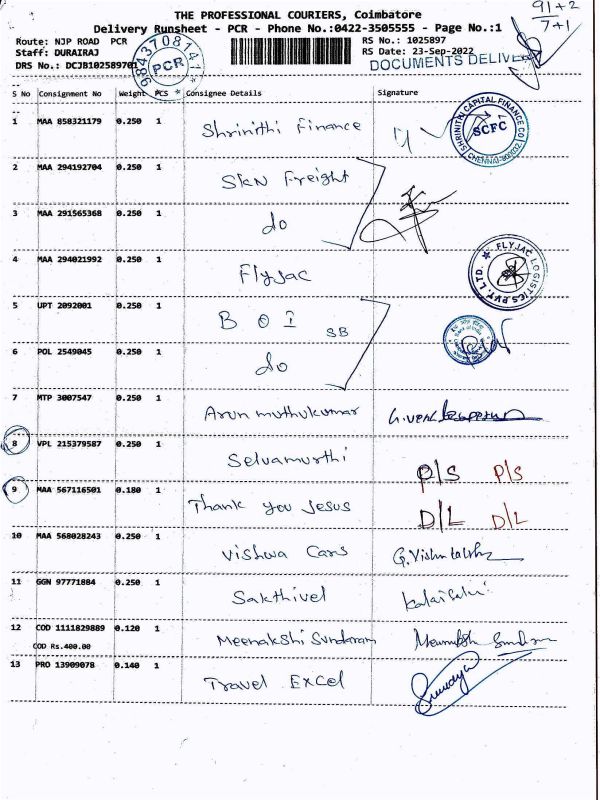 THE PROFESSIONAL COURIERS, Coimbatore
Delivery Runsheet - PCR - Phone No.:0422-3505555 - Page No.:1
91+2
7+1
Route: NJP ROAD PCR
RS No.: 1025897
Staff: DURAIRAJ
RS Date: 23-Sep-2022
DRS No.: DCJB102589701
9843708141
PCR
DOCUMENTS DELIVE
S No Consignment No Weight PCS Consignee Details Signature
1 MAA 858321179 0.250 1 Shrinithi Finance
SHRINITHI CAPITAL FINANCE CO
SCFC
CHENNAI-600032
2 MAA 294192704 0.250 1 SKN Freight
3 MAA 291565368 0.250 1 do
4 MAA 294021992 0.250 1 Flyjac
FLYJAC LOGISTICS PVT. LTD.
5 UPT 2092001 0.250 1 B O I SB
6 POL 2549045 0.250 1 do
7 MTP 3007547 0.250 1 Arun muthukumar
8 VPL 215379587 0.250 1 Selvamurthi P/S P/S
9 MAA 567116501 0.180 1 Thank you Jesus D/L D/L
10 MAA 568028243 0.250 1 Vishwa Cars
11 GGN 97771884 0.250 1 Sakthivel
12 COD 1111829889 0.120 1 Meenakshi Sundaram
COD Rs.400.00
13 PRO 13909078 0.140 1 Travel Excel